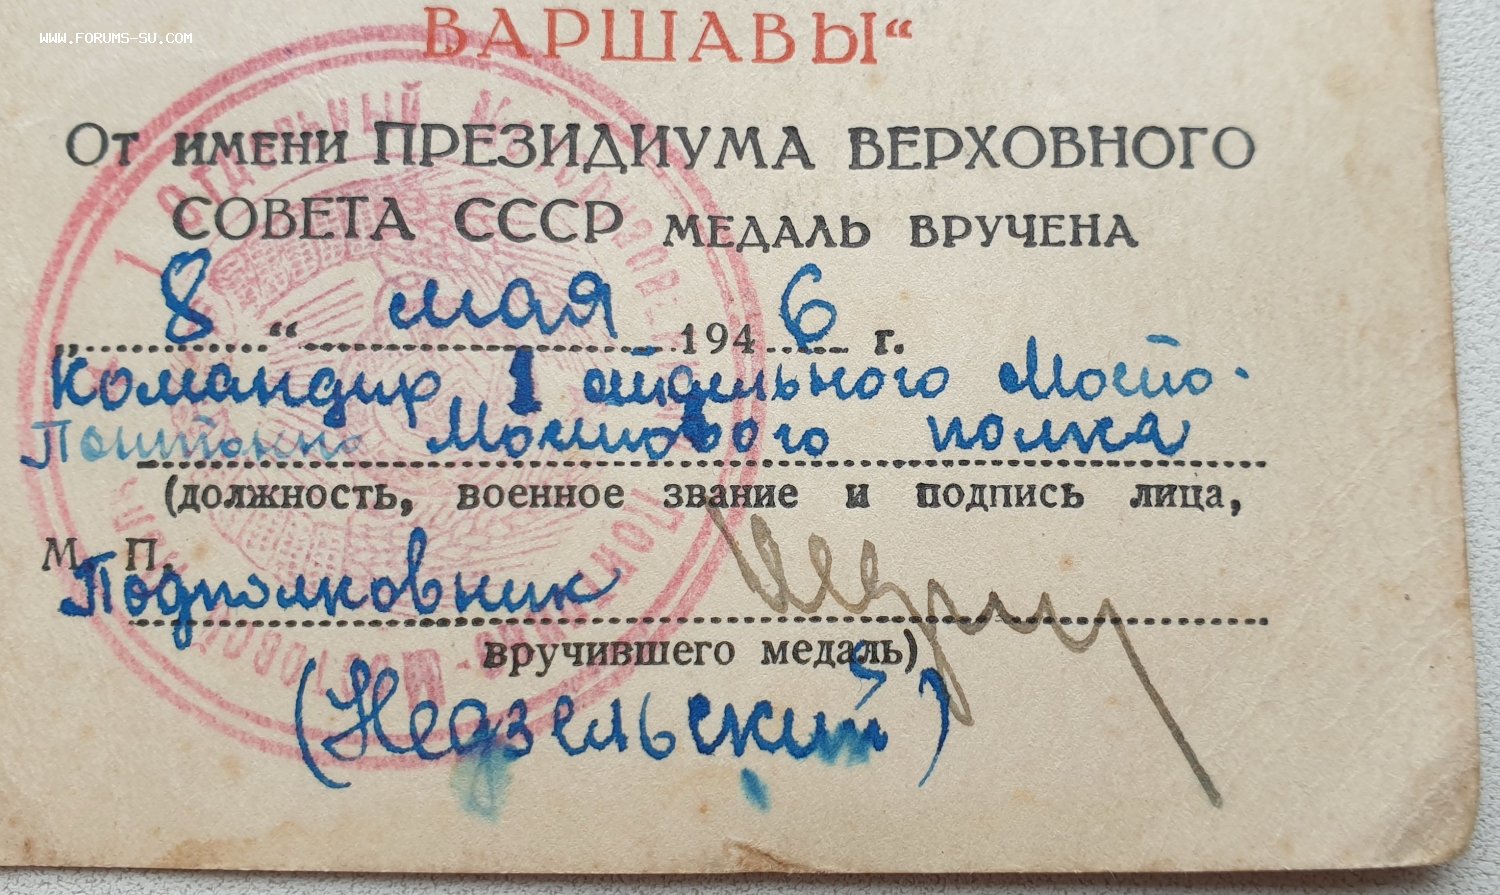 WWW.FORUMS-SU.COM
ВАРШАВЫ“
От имени ПРЕЗИДИУМА ВЕРХОВНОГО
СОВЕТА СССР медаль вручена
„8“ мая 1946 г.
Командир 1 отдельного Мосто-
Понтонно Мостового полка
(должность, военное звание и подпись лица,
М. П.
Подполковник
вручившего медаль)
(Недзельский)
ОТДЕЛЬНЫЙ